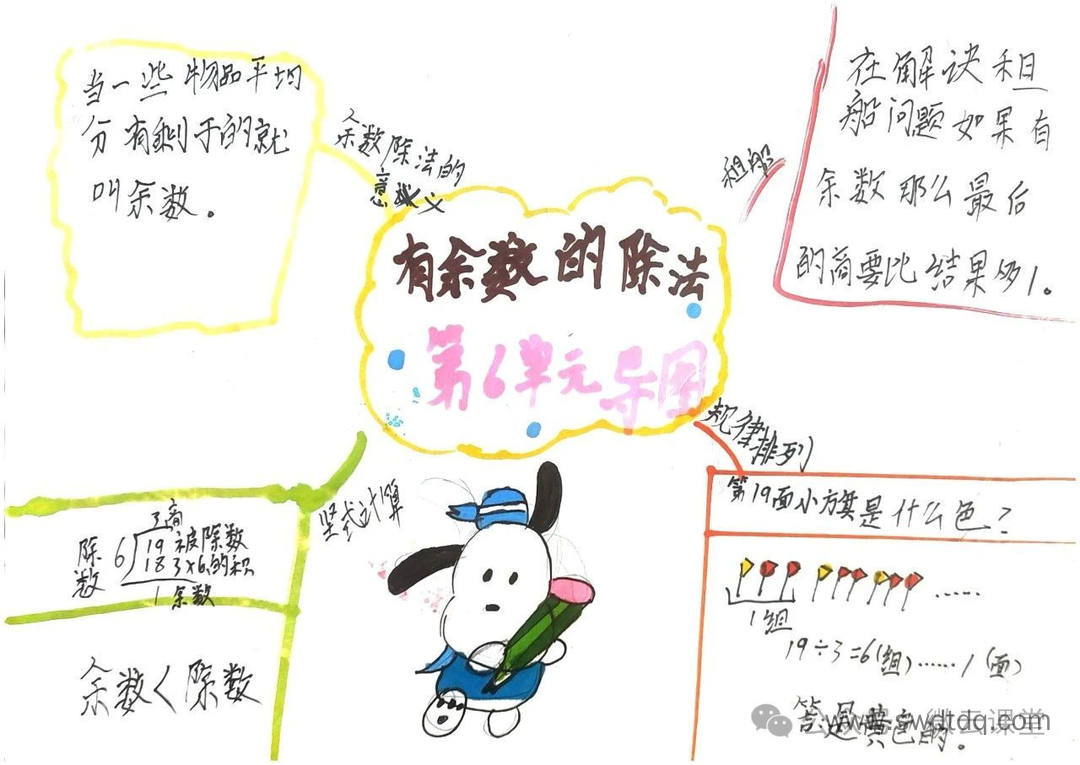 当一些物品平均
分有剩于的就
叫余数。
余数除法的
意义
有余数的除法
第6单元导图
租船
在解决租
船问题如果有
余数那么最后
的商要比结果多1。
规律
排列
第19面小旗是什么色？
1组
19÷3=6(组)……1(面)
答是黄色的。
竖式计算
3商
除数 6 19 被除数
18 3×6的积
1余数
余数<除数
公众号·微云课堂
www.swdtdq.com